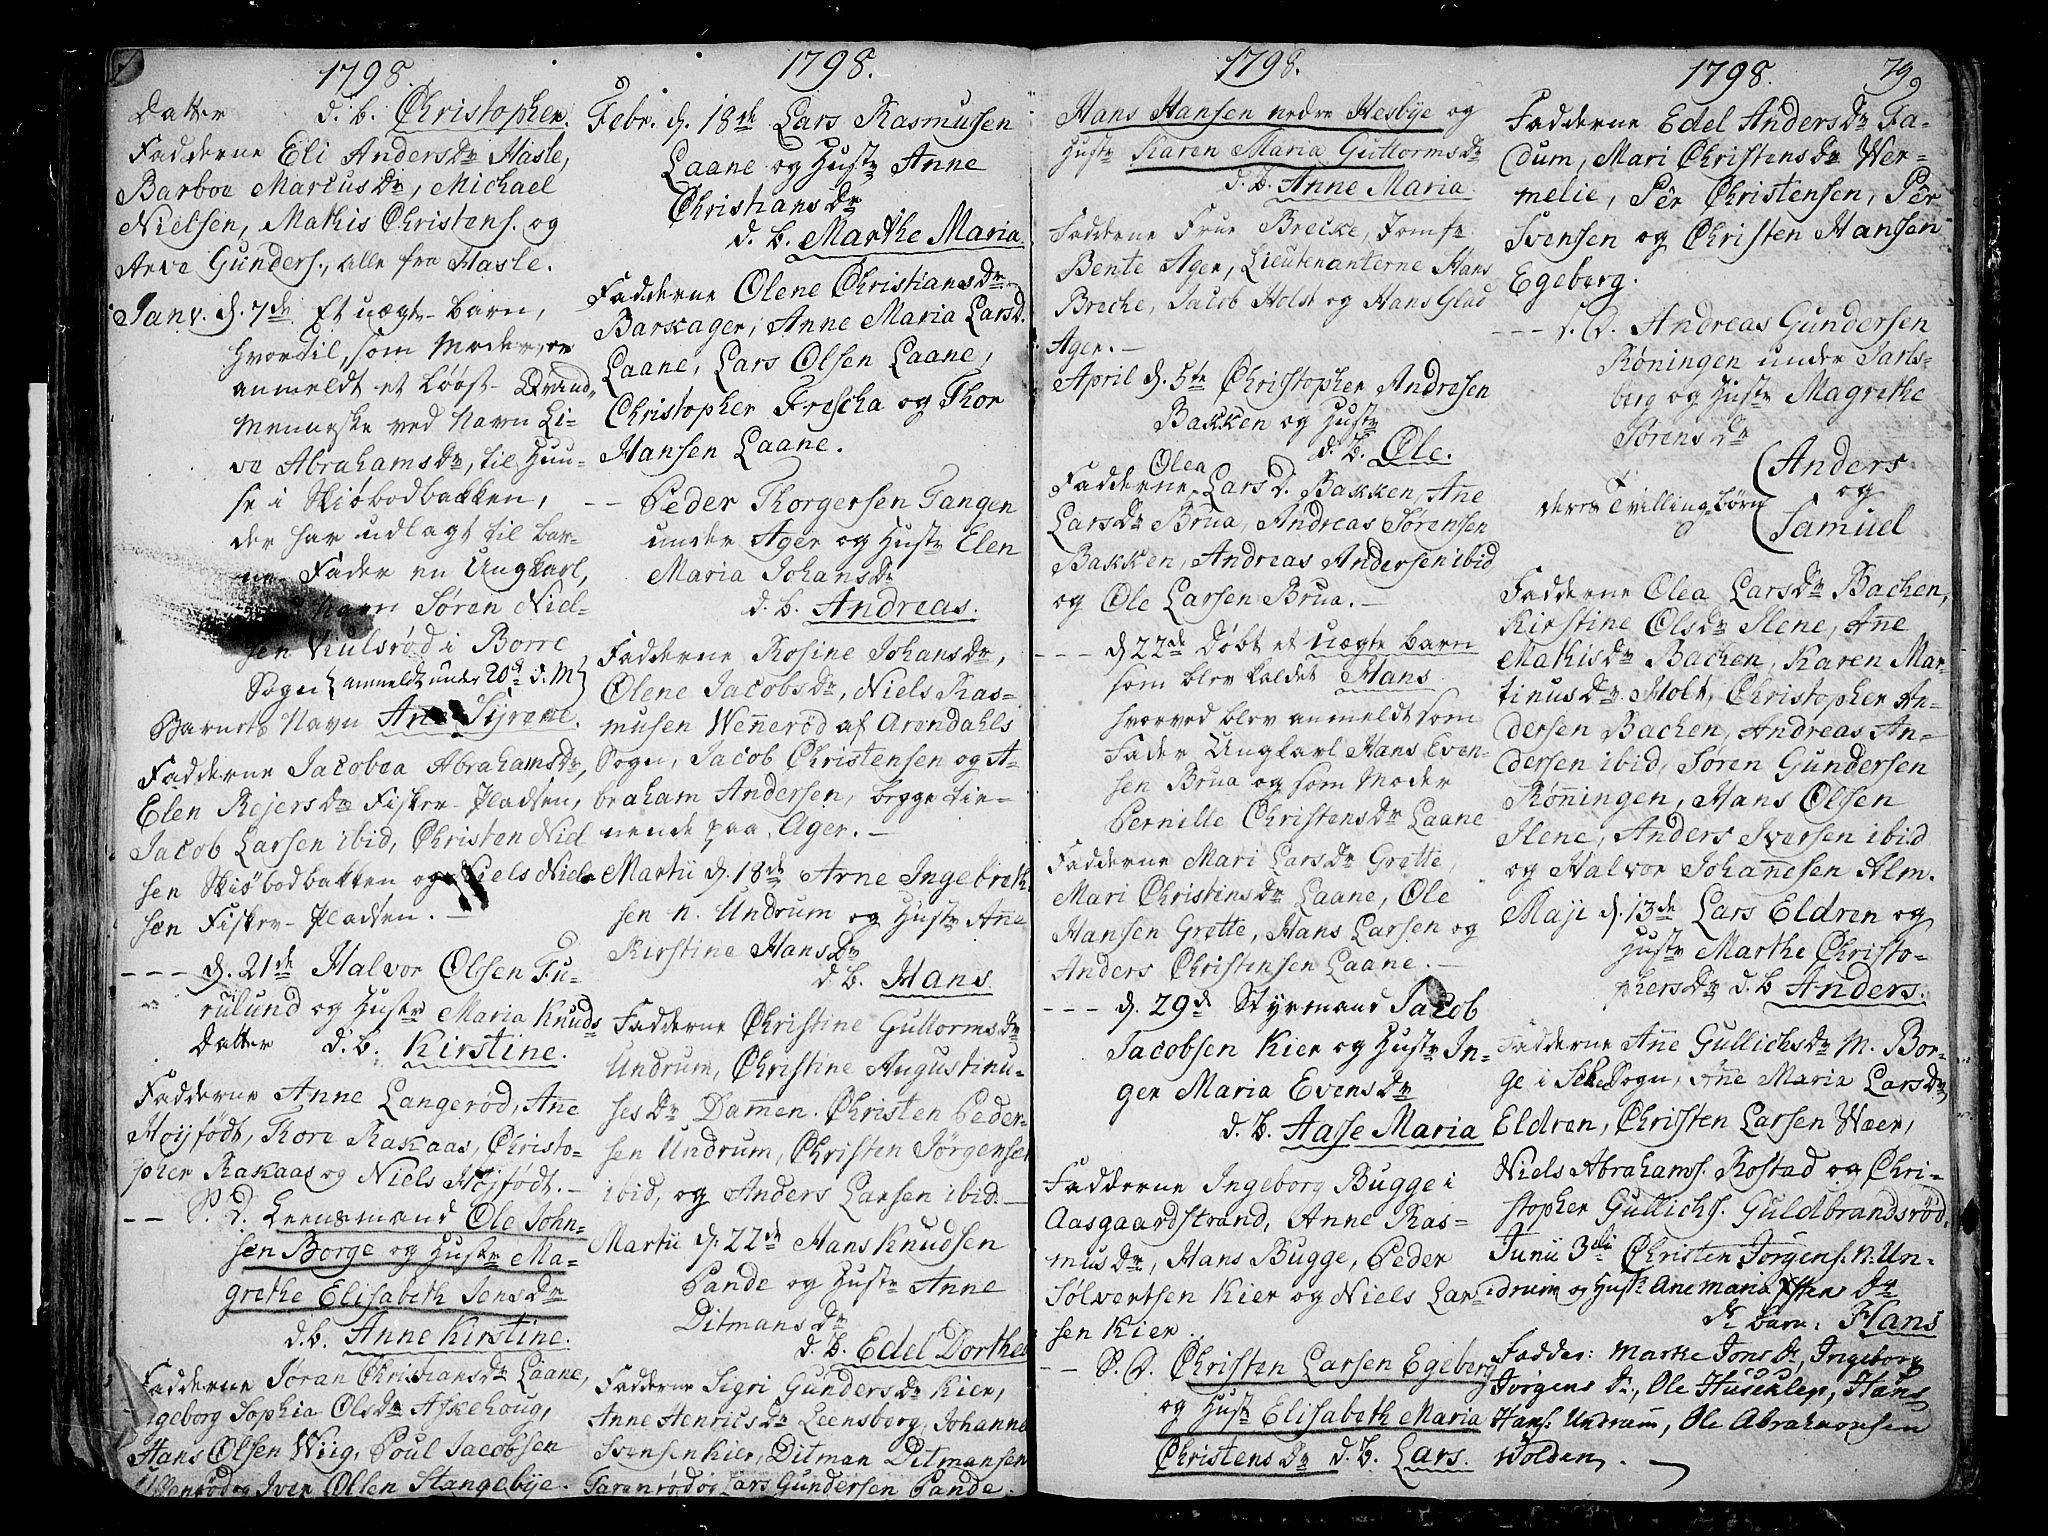 1798.
Datter d. b. Christopher.
Fadderne Eli Andersdr Hasle,
Barboe Marcusdr, Michael
Nielsen, Mathis Christens. og
Arve Gunders., alle fra Hasle.
Janv. d. 7de Et uægte barn,
hvortil, som Moder, er
anmeldt et Lööst Qvind-
menneske ved Navn Li-
ve Abrahamsdr, til Huu-
se i Skiöbodbakken,
der har udlagt til Bar-
ne Fader en Ungkarl,
Navn Sören Niel-
sen Kiulsröd i Borre
Sogn (anmeldt under 20d d. M)
Barnets Navn Anne Syrene.
Fadderne Jacobea Abrahamsdr,
Elen Rejersdr Fisker-Pladsen,
Jacob Larsen ibid, Christen Niel
sen Skiöbodbakken og Niels Niel-
sen Fisker-Pladsen. —
--- d. 21de Halvor Olsen Fu-
rulund og Hustr Maria Knuds
Datter d. b. Kirstine.
Fadderne Anne Langeröd, Ane
Höyfödt, Tore Rakaas, Christo-
pher Rakaas og Niels Höjfödt. —
-- S. D. Leensmand Ole John-
sen Borge og Hustr Ma-
grethe Elisabeth Jensdr
d. b. Anne Kirstine.
Fadderne Jöran Christiansdr Laane,
Ingeborg Sophia Olsdr Askehoug,
Hans Olsen Wiig, Poul Jacobsen
og Iver Olsen Stangebye.
1798.
Febr. d. 18de Lars Rasmusen
Laane og Hustr Anne
Christiansdr
d. b. Marthe Maria.
Fadderne Olene Christiansdr
Barkager, Anne Maria Larsd.
Laane, Lars Olsen Laane,
Christopher Frescha og Thor
Hansen Laane.
-- Peder Thorgersen Tangen
under Ager og Hustr Elen
Maria Johansdr
d. b. Andreas.
Fadderne Rosine Johansdr,
Olene Jacobsdr, Niels Ras-
musen Wenneröd af Arendahls
Sogn, Jacob Christensen og A-
braham Andersen, begge tie-
nende paa Ager. —
Martii d. 18de Arne Ingebreth
sen n. Undrum og Hustr Ane
Kirstine Hansdr
d. b. Hans
Fadderne Christine Guttormsdr
Undrum, Christine Augustinu-
sesdr Dammen. Christen Peder-
sen Undrum, Christen Jörgensen
ibid, og Anders Larsen ibid. —
Martii d. 22de Hans Knudsen
Pande og Hustr Anne
Ditmansdr
d. b. Edel Dorthea
Fadderne Sigri Gundersdr Kier,
Anne Henricsdr Leensberg, Johanne
Svensen Kier, Ditman Ditmansen
Faranröd og Lars Gundersen Pande.
1798.
Hans Hansen nedre Hesbye og
Hustr Karen Maria Guttormsdr
d. b. Anne Maria.
Fadderne Frue Brecke, Jomfr.
Bente Ager, Lieutenanterne Hans
Breche, Jacob Holst og Hans Glad
Ager. —
April d. 5te Christopher Andresen
Bakken og Hustr
d. b. Ole.
Fadderne Olea Larsd. Bakken, Ane
Larsdr Brua, Andreas Sörensen
Bakken, Andreas Andersen ibid
og Ole Larsen Brua. —
--- d 22de Döbt et uægte barn
som blev kaldet Hans
hvorved blev anmeldt som
Fader Ungkarl Hans Even-
sen Brua og som Moder
Pernille Christensdr Laane
Fadderne Mari Larsdr Grette,
Mari Christinsdr Laane, Ole
Hansen Grette, Hans Larsen og
Anders Christensen Laane. —
--- d. 29d Styrmand Jacob
Jacobsen Kier og Hustr In-
ger Maria Evensdr
d. b. Aasse Maria
Fadderne Ingeborg Bugge i
Aasgaardstrand, Anne Ras-
musdr, Hans Bugge, Peder
Sölvertsen Kier og Niels Lar-
sen Kier.
-- S. D. Christen Larsen Egeberg
og Hustr Elisabeth Maria
Christensdr d. b. Lars.
1798. 79
Fadderne Edel Andersdr Fa-
dum, Mari Christensdr Wer-
melie, Pêr Christensen, Pêr
Svensen og Christen Hansen
Egeberg.
--- S. D. Andreas Gundersen
Röningen under Jarls-
berg og Hustr Magrethe
Sörensdr
deres Tvillingbörn (Anders
og
Samuel
Fadderne Olea Larsdr Bachen,
Kirstine Olsdr Ilene, Ane
Mathisdr Bachen, Karen Mar-
tinusdr Holt, Christopher An-
dersen Bachen, Andreas An-
dersen ibid, Sören Gundersen
Rönningen, Hans Olsen
Ilene, Anders Iversen ibid
og Halvor Johannesen Alm.
Maji d. 13de Lars Eldren og
Hustr Marthe Christo-
phersdr d. b Anders.
Fadderne Ane Gullichsdr M. Bor-
ge i Sogn, Ane Maria Larsdr
Eldren, Christen Larsen Wær,
Niels Abrahams. Rostad og Chri-
stopher Gullichs. Guldbrandsröd.
Junii 3di Christen Jörgens. n. Un-
drum og Hustr Ane Maria dr
barn: Hans
Fadder: Marte Jonsdr, Ingeborg
Jörgensdr., Ole Huseklep, Hans
Hans: Undrum, Ole Abrahamsen
Wolden. —